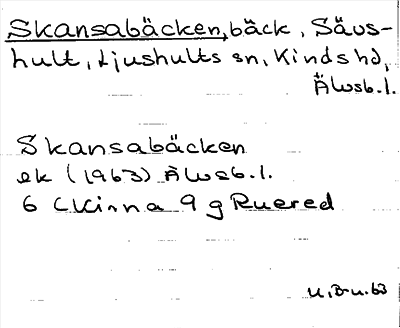 Skansabäcken, bäck, Säus-
hult, Ljushults sn, Kinds hd,
Älvsb.l.
Skansabäcken
ek (1963) Älvsb.l.
6 C Kinna 9 g Ruered